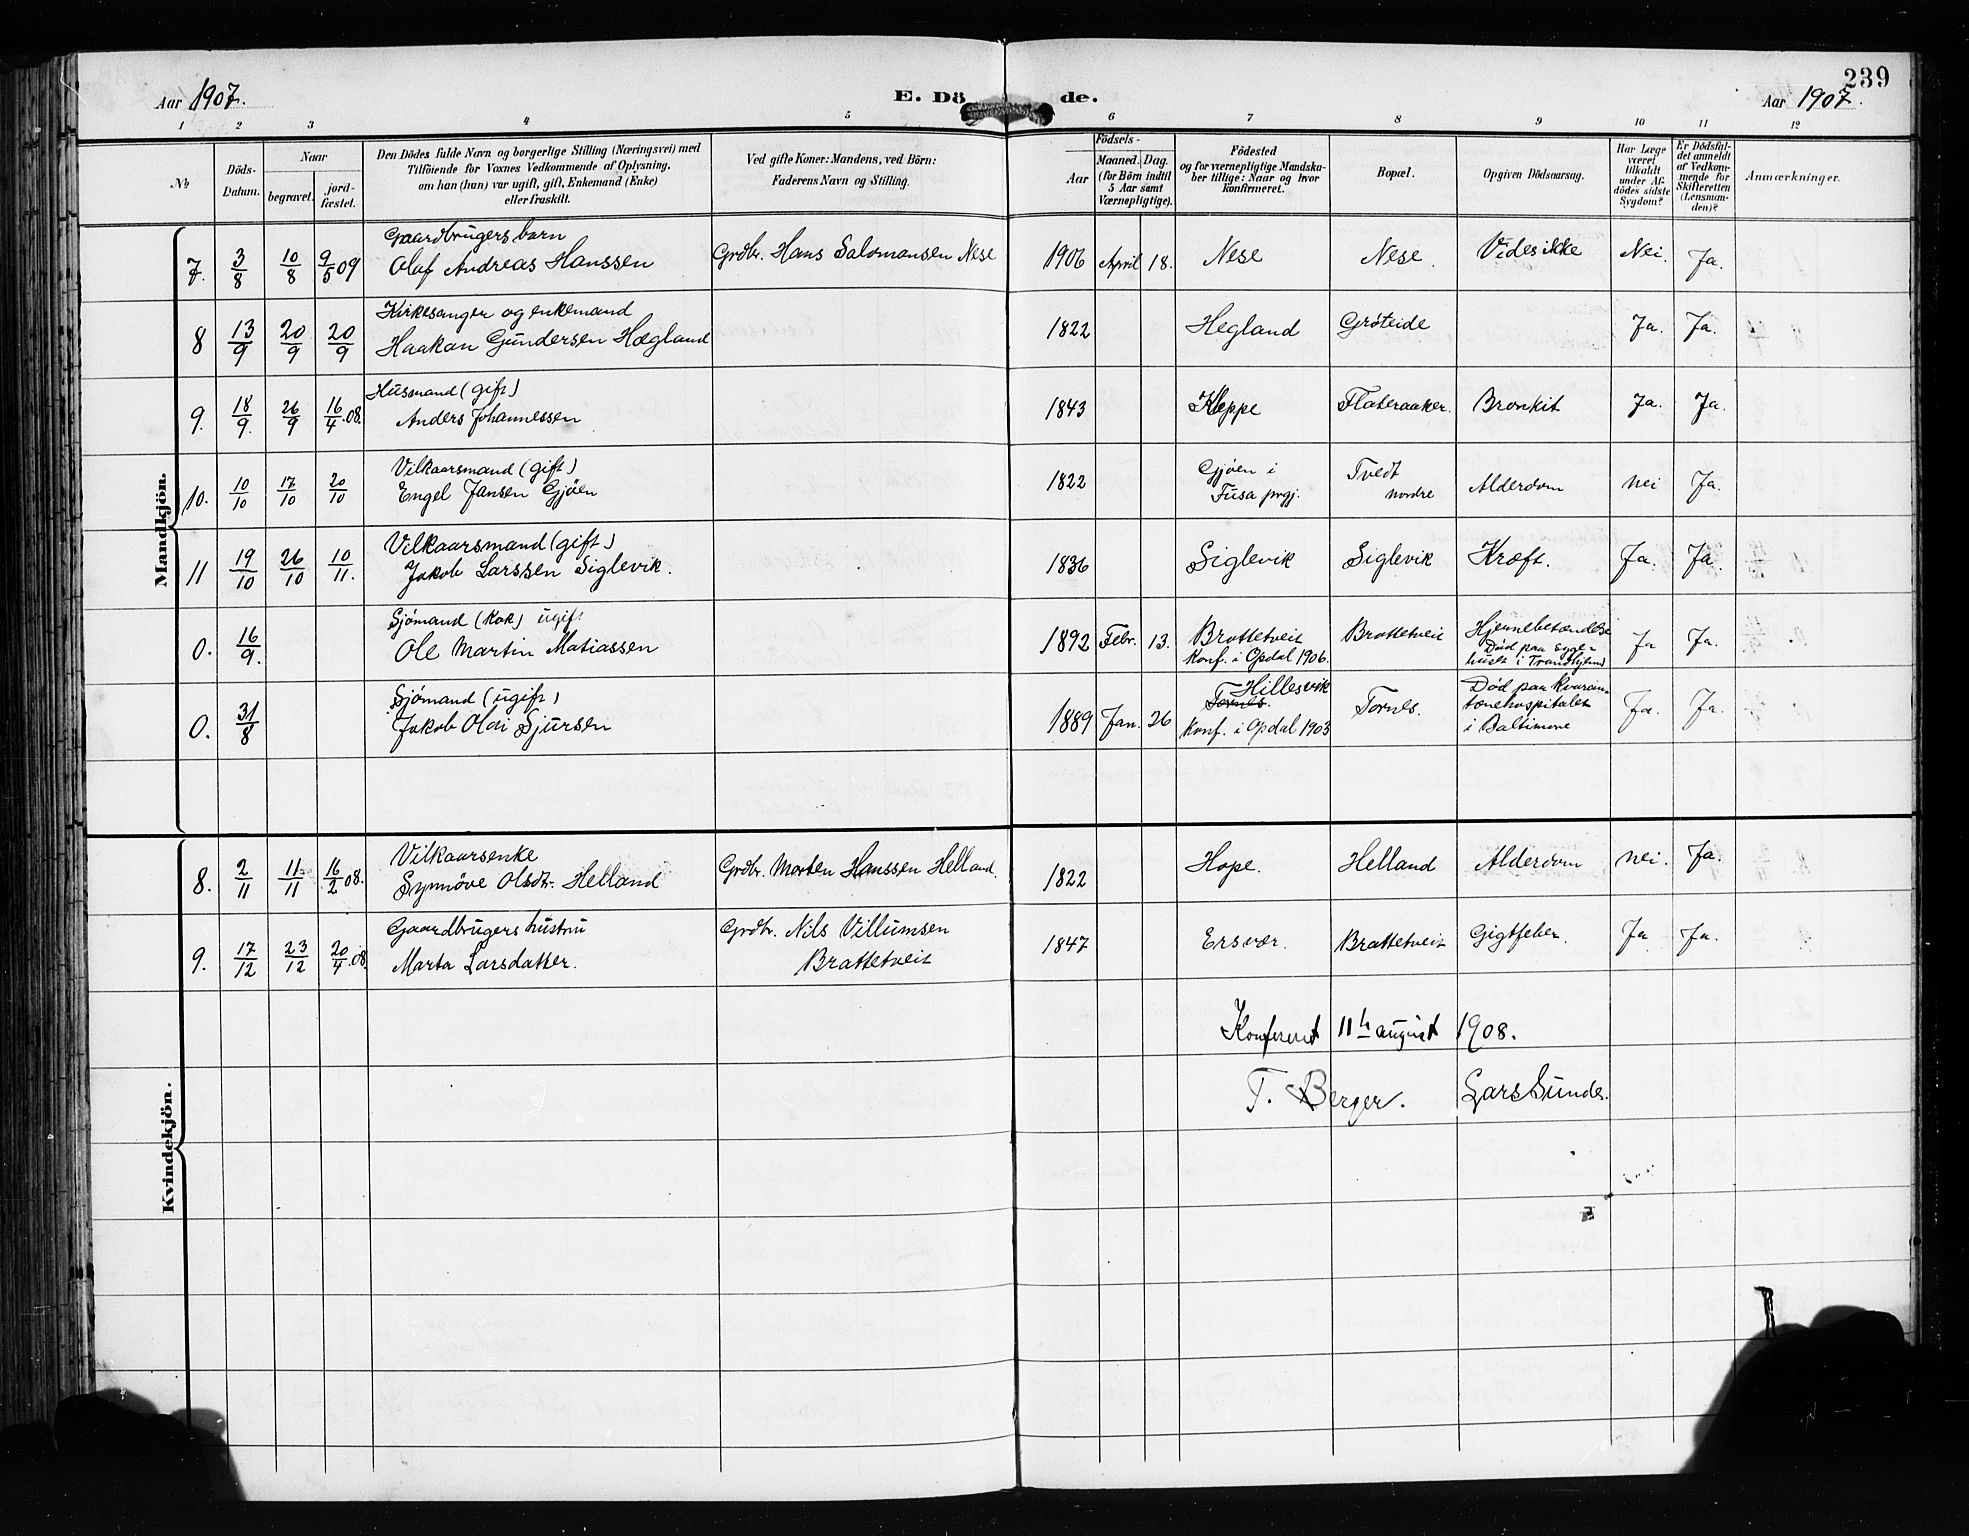 239
Aar 1907.
E. Dö de.
Aar 1907.
1 2 3 4 5 6 7 8 9 10 11 12
No
Döds-Datum.
Naar
begravet.
jord-fæstet.
Den Dödes fulde Navn og borgerlige Stilling (Næringsvei) med
Tilföiende for Voxnes Vedkommende af Oplysning,
om han (hun) var ugift, gift, Enkemand (Enke)
eller fraskilt.
Ved gifte Koner: Mandens, ved Börn:
Faderens Navn og Stilling.
Födsels-
Aar
Maaned. Dag.
(for Börn indtil
5 Aar samt
Værnepligtige).
Födested
og for værnepligtige Mandska-
ber tillige: Naar og hvor
konfirmeret.
Bopæl.
Opgiven Dödsaarsag.
Har Læge
været
tilkaldt
under Af-
dödes sidste
Sygdom?
Er Dödsfal-
det anmeldt
af Vedkom-
mende for
Skifteretten
(Lensman-
den)?
Anmærkninger.
Mandkjön.
Gaardbrugers barn
7. 3/8 10/8 9/5 09 Olaf Andreas Hanssen Grdbr. Hans Salomonsen Nese 1906 April 18. Nese Nese. Vides ikke Nei. Ja.
Kirkesanger og enkemand
8 13/9 20/9 20/9 Haakon Gundersen Hægland 1822 Hegland Gröteide Ja. Ja.
Husmand (gift)
9. 18/9. 26/9 16/4.08. Anders Johannessen 1843 Kleppe Flateraaker. Bronkit Ja. Ja.
Vilkaarsmand (gift)
10. 10/10 17/10 20/10 Engel Jansen Gjöen 1822 Gjöen i
Fusa prgj. Tvedt
nordre Alderdom nei Ja.
Vilkaarsmand (gift)
11 19/10 26/10 10/11. Jakob Larssen Siglevik. 1836 Siglevik Siglevik Kræft. Ja. Ja.
Sjömand (kok) ugift
0. 16/9. Ole Martin Matiassen 1892 Febr. 13. Brattetveit
Konf. i Opdal 1906. Brattetveit Hjernebetændelse
Död paa syge-
huset i Trondhjem Ja Ja.
Sjömand (ugift)
0. 31/8 Jakob Olai Sjursen 1889 Jan. 26 Hillesvik
Tornes.
Konf. i Opdal 1903 Tornes. Död paa Kvaran-
tænehospitalet
i Baltimore Ja. Ja.
Kvindekjön.
Vilkaarsenke
8. 2/11 11/11 16/2 08. Synnöve Olsdtr. Helland Grdbr. Morten Hanssen Helland. 1822 Hope. Helland Alderdom nei. Ja.
Gaardbrugers hustru
9. 17/12 23/12 20/4.08. Marta Larsdatter. Grdbr. Nils Villumsen
Brattetveit 1847 Ersvær. Brattetveit Gigtfeber. Ja Ja.
Konfereret 11te august 1908.
T. Berger. Lars Sunde.